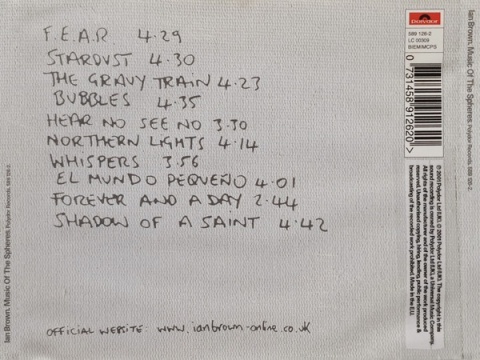 F.E.A.R 4.29
STARDUST 4.30
THE GRAVY TRAIN 4.23
BUBBLES 4.35
HEAR NO SEE NO 3.30
NORTHERN LIGHTS 4.14
WHISPERS 3.56
EL MUNDO PEQUEÑO 4.01
FOREVER AND A DAY 2.44
SHADOW OF A SAINT 4.42
OFFICIAL WEBSITE: www.ianbrown-online.co.uk
Ian Brown. Music Of The Spheres. Polydor Records. 589 126-2
polydor
589 126-2
LC 00309
BIEM/MCPS
0 731458 912620
℗ 2001 Polydor Ltd (UK). © 2001 Polydor Ltd (UK). The copyright in this
sound recording is owned by Polydor Ltd (UK), a Universal Music Company.
All rights of the manufacturer and of the owner of the work produced
reserved. Unauthorised copying, hiring, lending, public performance &
broadcasting of the recorded work prohibited. Made in the E.U.
Ian Brown. Music Of The Spheres. Polydor Records. 589 126-2